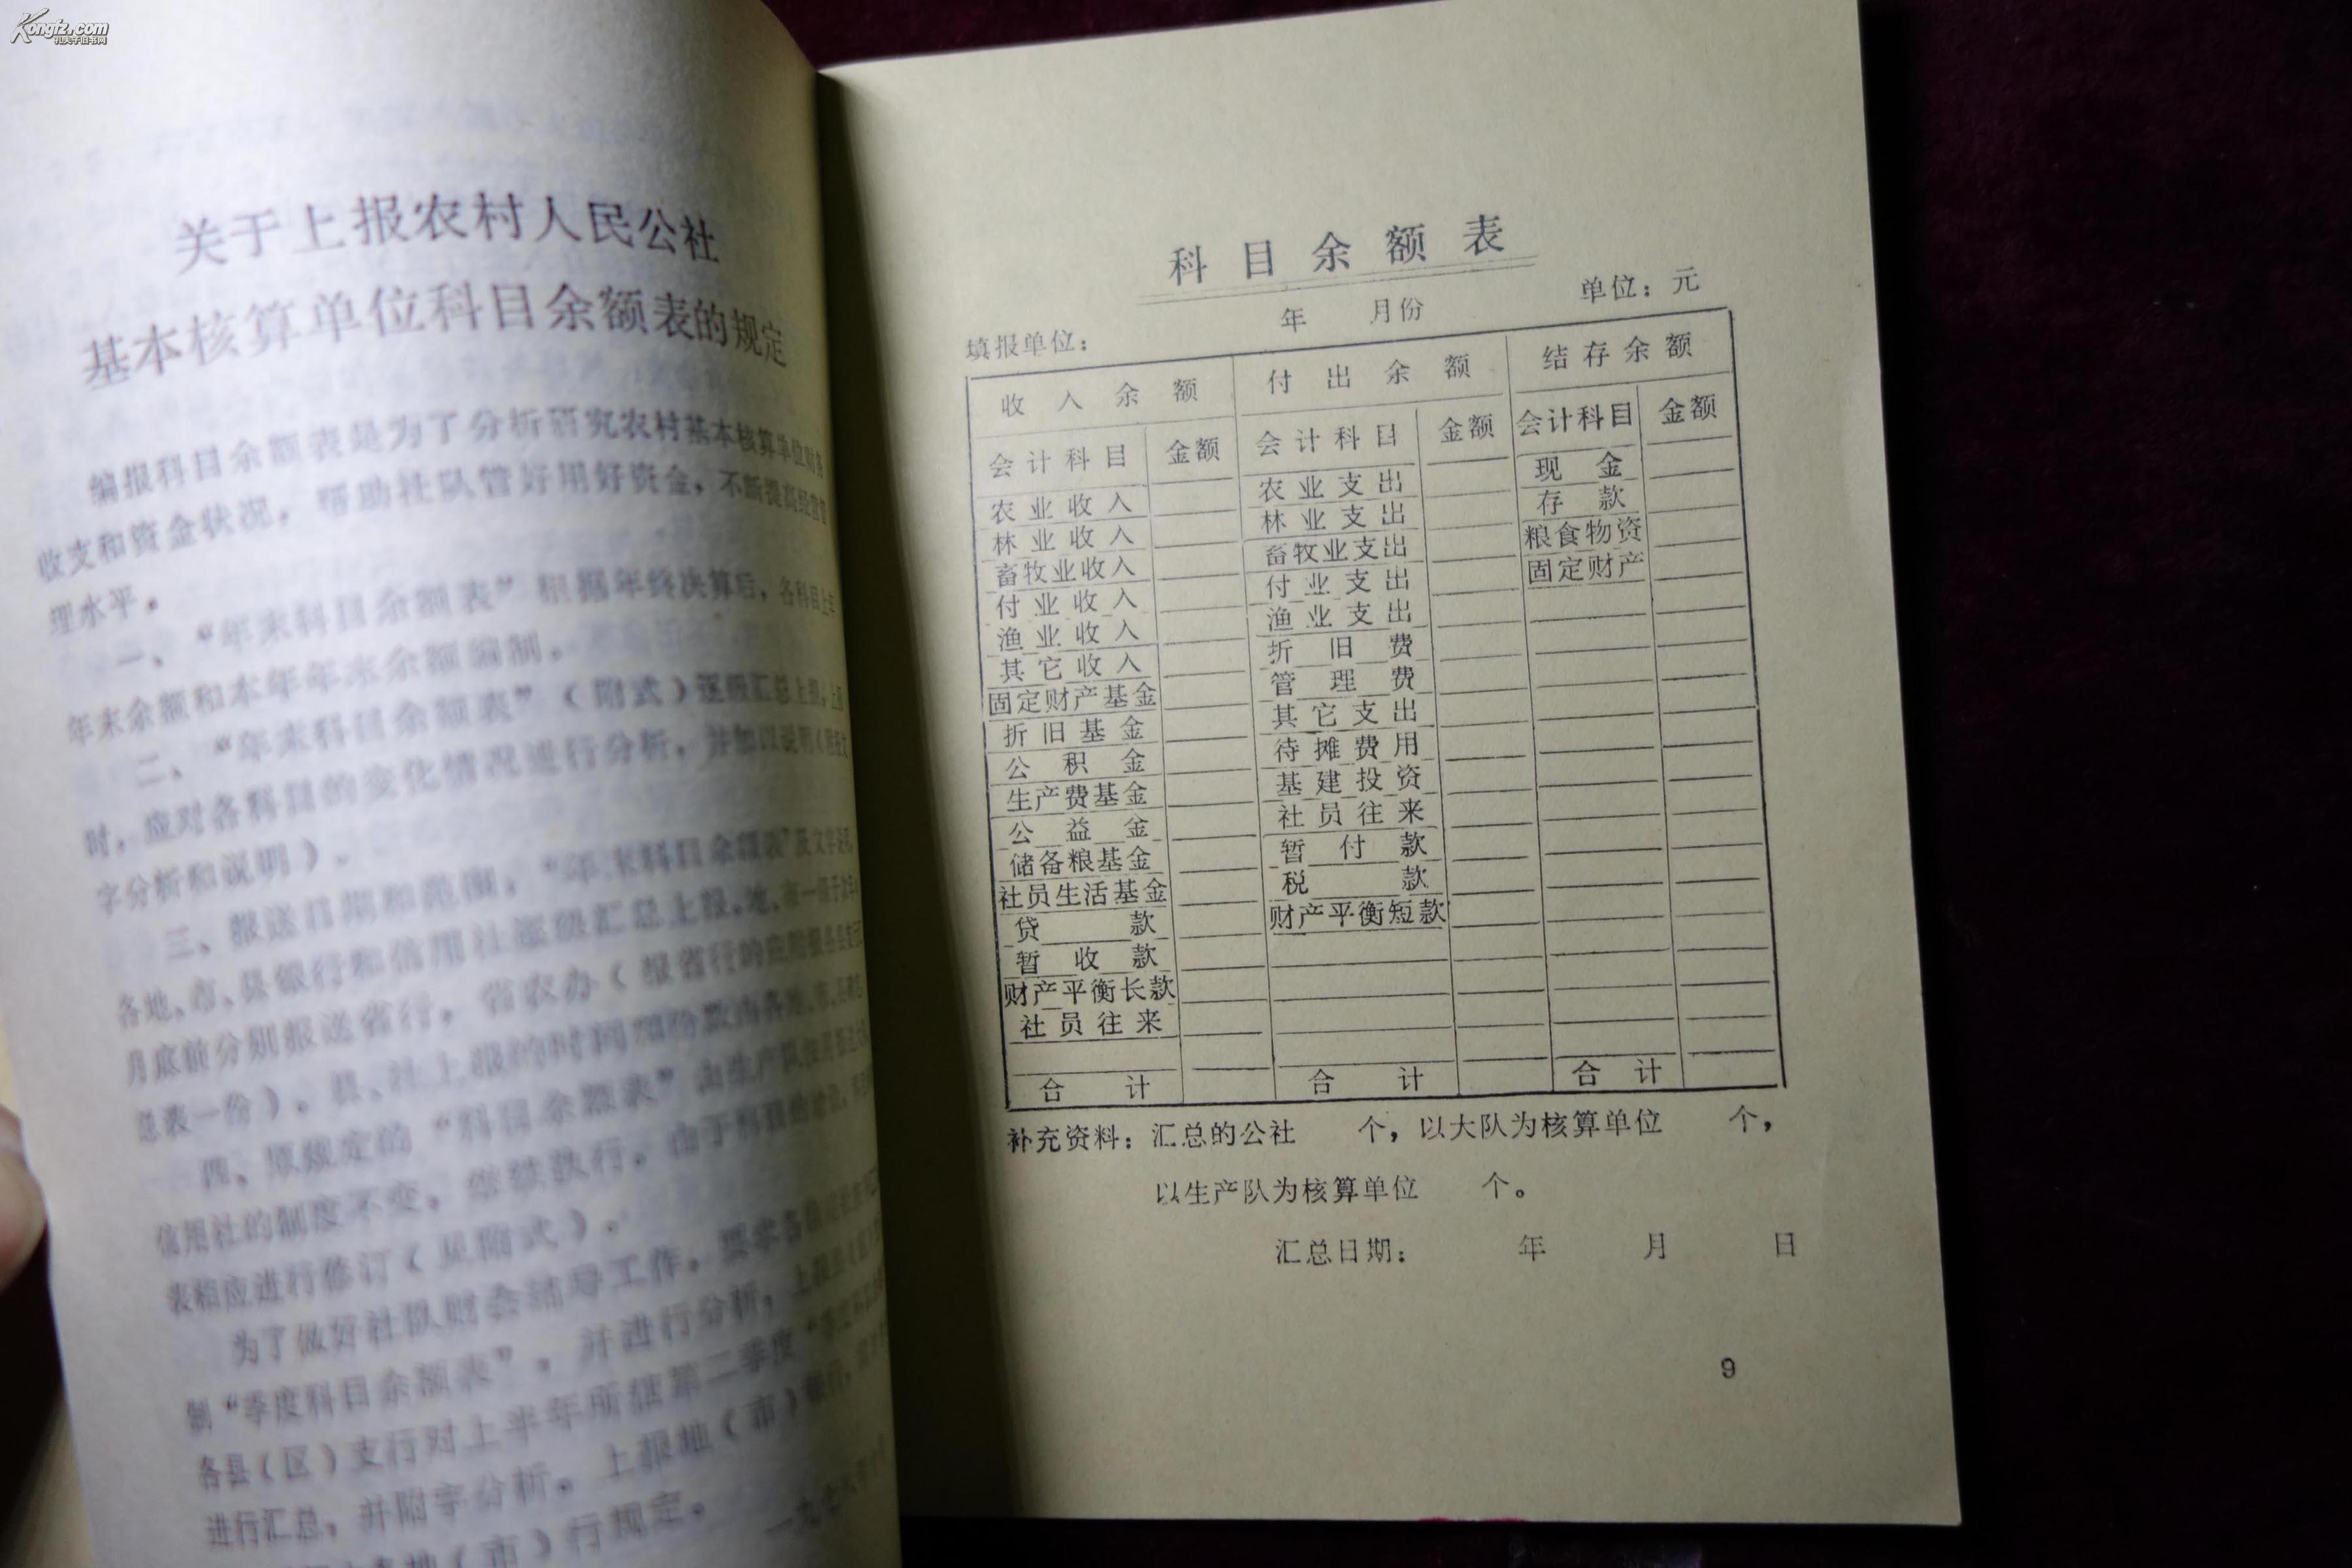 Kongfz.com
孔夫子旧书网
关于上报农村人民公社
基本核算单位科目余额表的规定
编报科目余额表是为了分析研究农村基本核算单位财务
收支和资金状况，帮助社队管好用好资金，不断提高经营管
理水平。
一、“年末科目余额表”根据年终决算后，各科目上年
年末余额和本年年末余额编制。
二、“年末科目余额表”（附式）逐级汇总上报，上报
时，应对各科目的变化情况进行分析，并加以说明（
字分析和说明）。
三、报送日期和范围，“年末科目余额表”及文字
各地、市、县银行和信用社逐级汇总上报，地、市一级于
月底前分别报送省行，省农办（报省行的应附报各县
总表一份）。县、社上报的时间和份数由各地、市、
四、原规定的“科目余额表”由生产队
信用社的制度不变，继续执行。由于科目的
表相应进行修订（见附式）。
为了做好社队财会辅导工作，要求各
制“季度科目余额表”，并进行分析，上报
各县（区）支行对上半年所辖第二季度“
进行汇总，并附字分析。上报地（市）
地（市）行规定。
一九七
科目余额表
年 月份 单位：元
填报单位：
收入余额 付出余额 结存余额
会计科目 金额 会计科目 金额 会计科目 金额
农业收入 农业支出 现金
林业收入 林业支出 存款
畜牧业收入 畜牧业支出 粮食物资
付业收入 付业支出 固定财产
渔业收入 渔业支出
其它收入 折旧费
固定财产基金 管理费
折旧基金 其它支出
公积金 待摊费用
生产费基金 基建投资
公益金 社员往来
储备粮基金 暂付款
社员生活基金 税款
贷款 财产平衡短款
暂收款
财产平衡长款
社员往来
合计 合计 合计
补充资料：汇总的公社 个，以大队为核算单位 个，
以生产队为核算单位 个。
汇总日期： 年 月 日
9